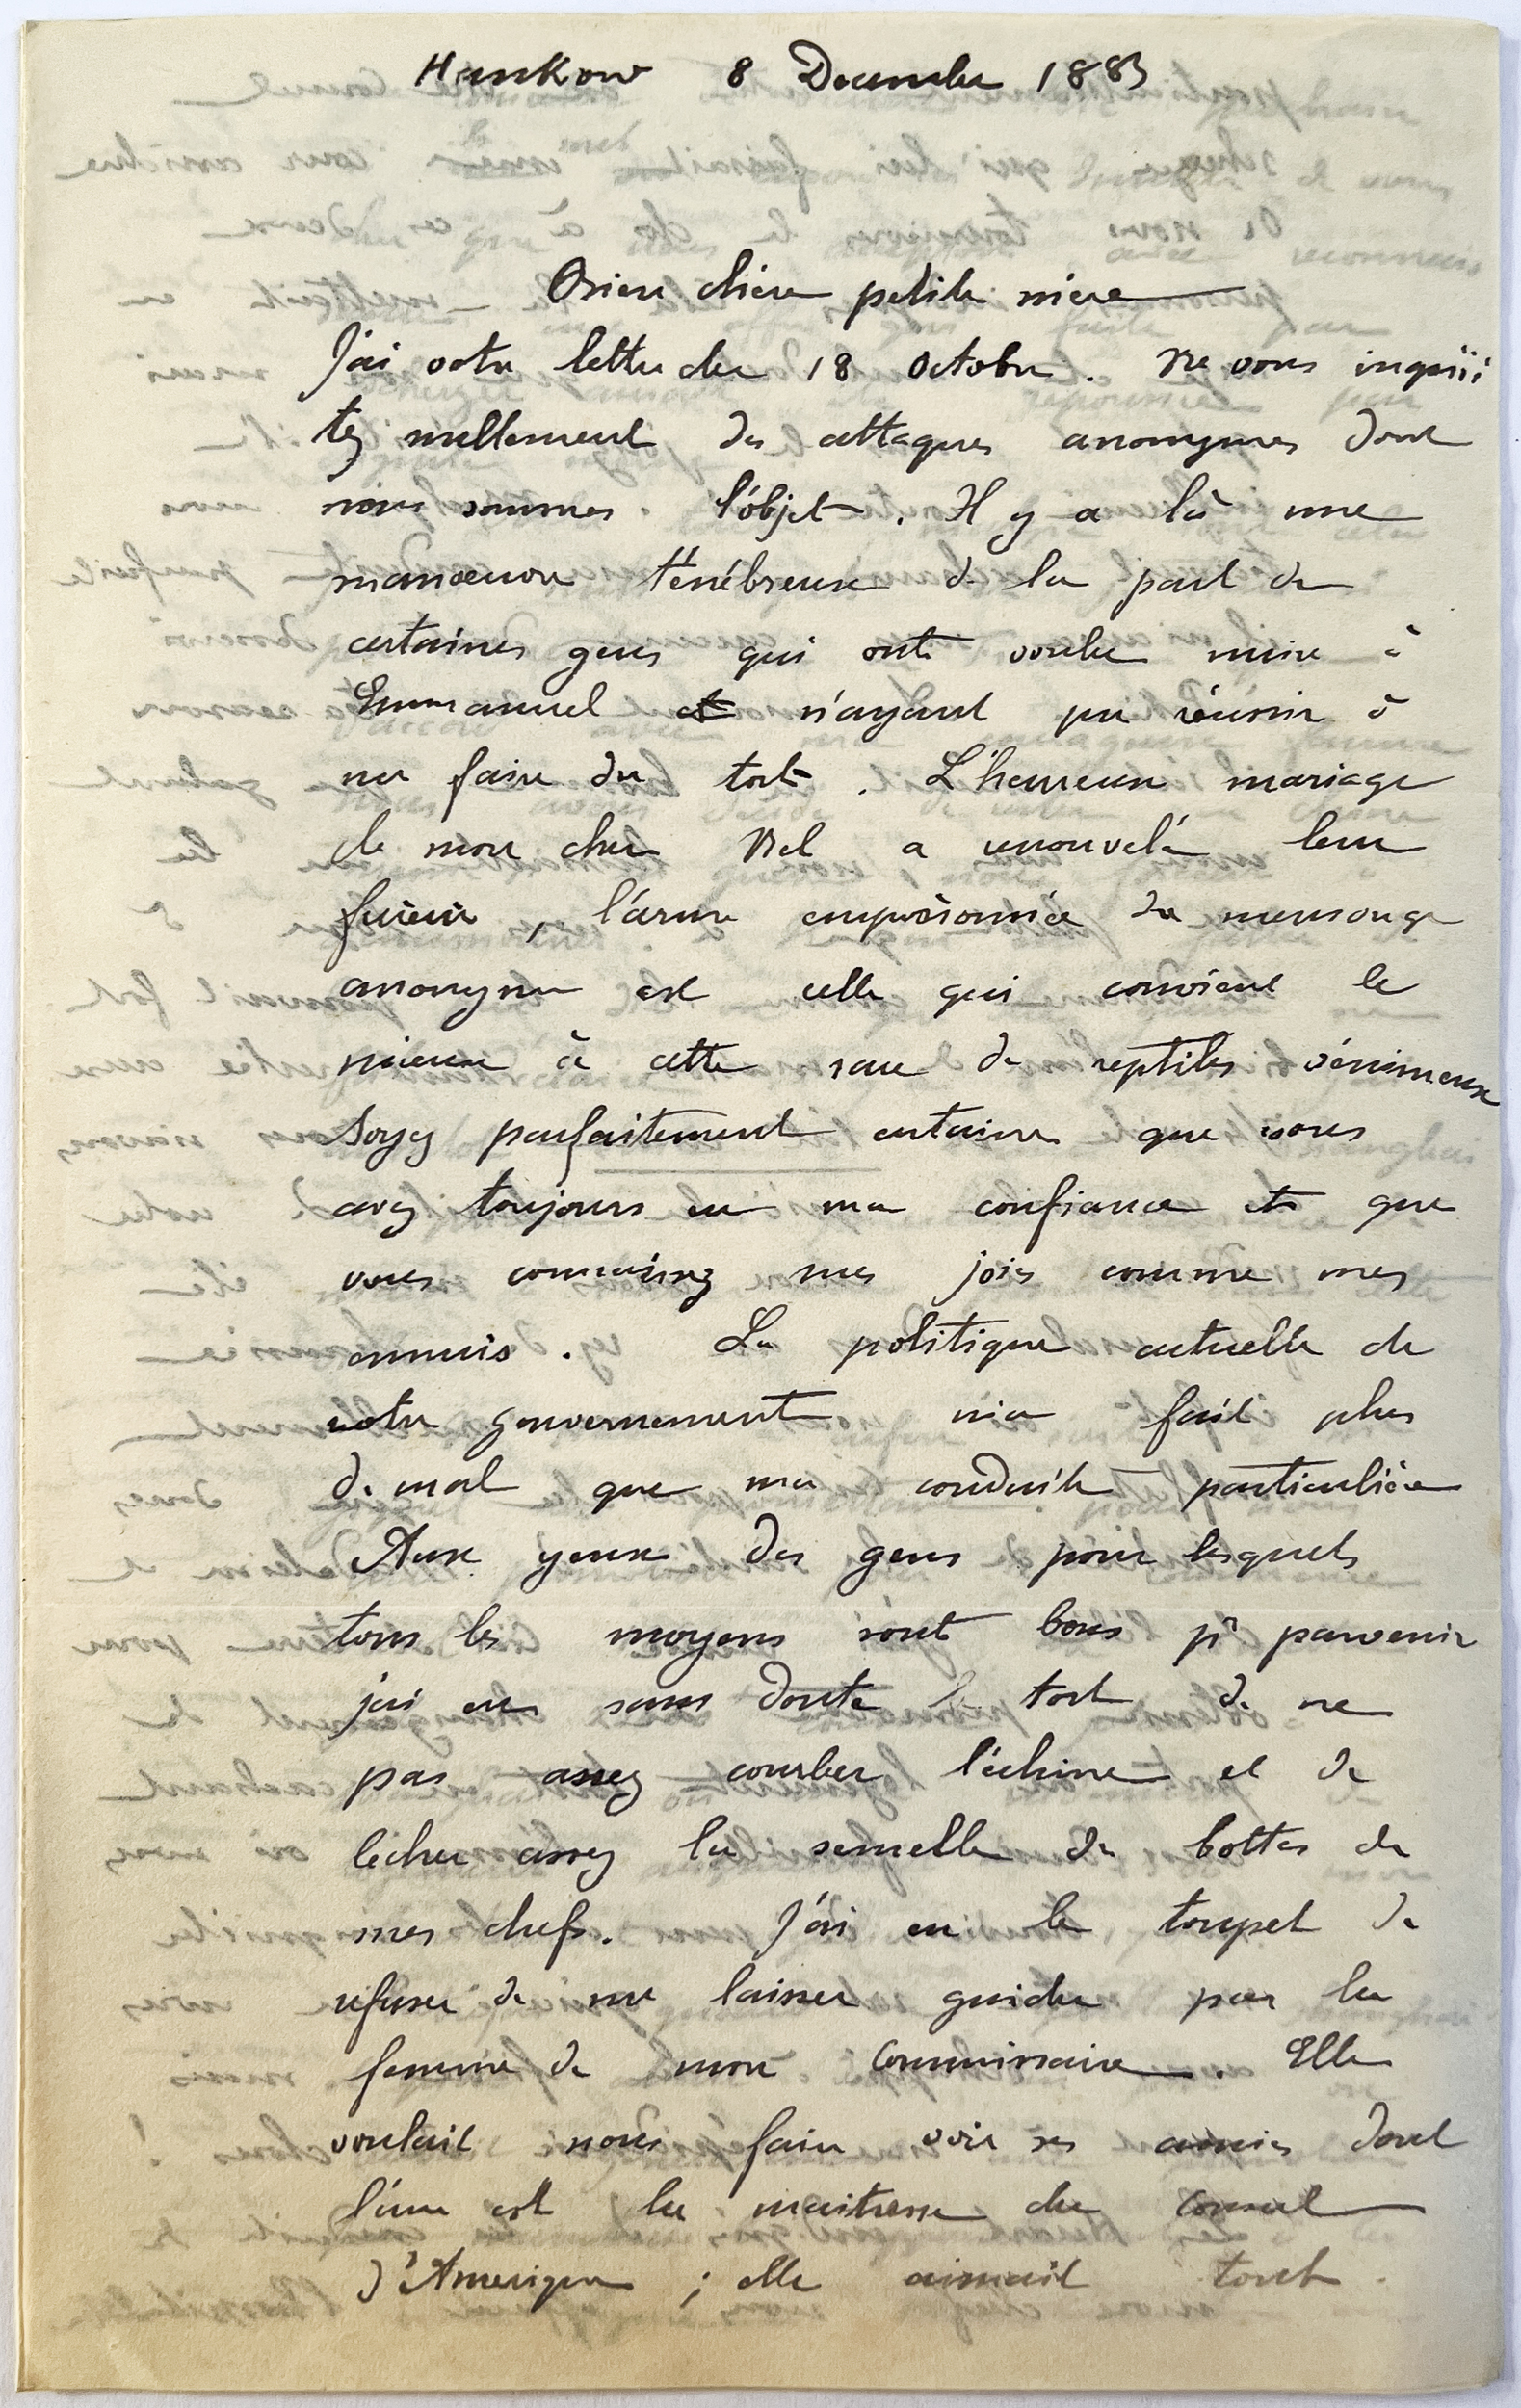 Hankow 8 Decembre 1883
Ma chère petite mère
J'ai votre lettre du 18 Octobre. Ne vous inquié
tez nullement des attaques anonymes dont
nous sommes l'objet. Il y a là une
manoeuvre ténébreuse de la part de
certaines gens qui ont voulu nuire à
Emmanuel et n'ayant pu réussir à
me faire du tort. L'heureux mariage
de mon cher Nel a renouvelé leur
fureur, l'arme empoisonnée du mensonge
anonyme est celle qui convient le
mieux à cette race de reptiles vénimeux
Soyez parfaitement certaine que vous
avez toujours eu ma confiance et que
vous connaissez mes joies comme mes
ennuis. La politique actuelle de
notre gouvernement m'a fait plus
de mal que ma conduite particulière
Aux yeux des gens pour lesquels
tous les moyens sont bons pr parvenir
j'ai eu sans doute le tort de ne
pas assez courber l'échine et de
lécher assez la semelle de bottes de
mes chefs. J'ai eu le toupet de
refuser de me laisser guider par la
femme de mon Commissaire. Elle
voulait nous faire voir ses amies dont
l'une est la maitresse du Consul
d'Amerique ; elle aimait tout.